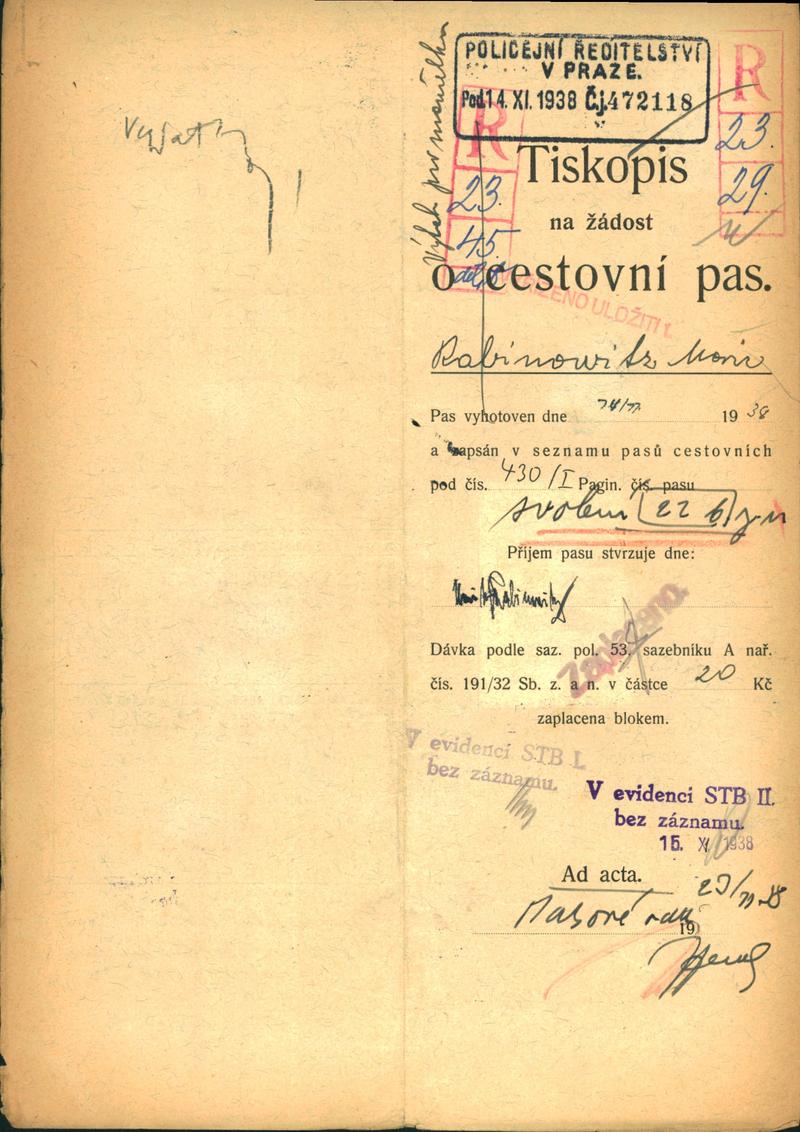 POLICEJNÍ ŘEDITELSTVÍ
V PRAZE.
Pod. 14. XI. 1938 Čj. 472118
R
23.
29.
R
23.
45.
Tiskopis
na žádost
o cestovní pas.
ULOŽITI
Rabinowitz Moric
Pas vyhotoven dne 1938
a zapsán v seznamu pasů cestovních
pod čís. 430/I Pagin. čís. pasu
22
Příjem pasu stvrzuje dne:
Zaplaceno.
Dávka podle saz. pol. 53, sazebníku A nař.
čís. 191/32 Sb. z. a n. v částce 20 Kč
zaplacena blokem.
V evidenci STB I.
bez záznamu.
V evidenci STB II.
bez záznamu.
15. XI 1938
Ad acta.
19